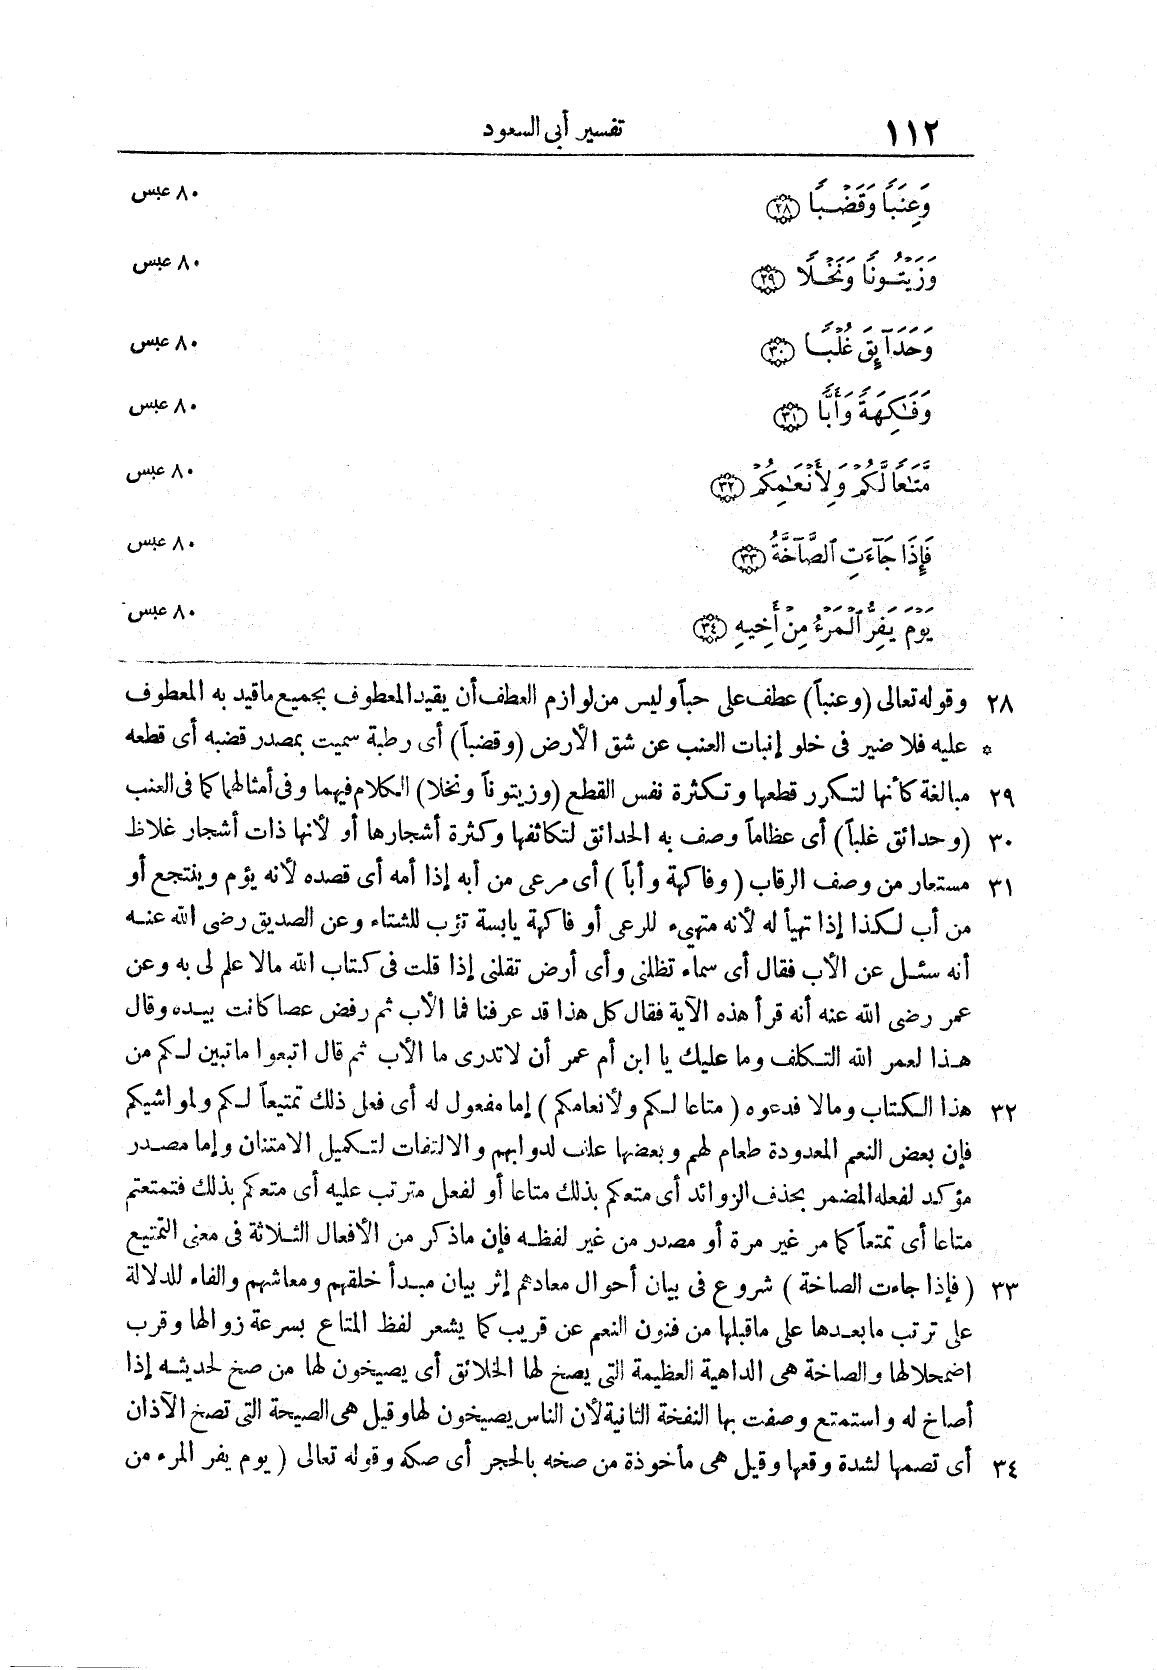 ١١٢
تفسير أبى السعود
وَعِنَبًا وَقَضْبًا ﴿٢٨﴾ ٨٠ عبس
وَزَيْتُونًا وَنَخْلًا ﴿٢٩﴾ ٨٠ عبس
وَحَدَآئِقَ غُلْبًا ﴿٣٠﴾ ٨٠ عبس
وَفَٰكِهَةً وَأَبًّا ﴿٣١﴾ ٨٠ عبس
مَّتَٰعًا لَّكُمْ وَلِأَنْعَٰمِكُمْ ﴿٣٢﴾ ٨٠ عبس
فَإِذَا جَآءَتِ ٱلصَّآخَّةُ ﴿٣٣﴾ ٨٠ عبس
يَوْمَ يَفِرُّ ٱلْمَرْءُ مِنْ أَخِيهِ ﴿٣٤﴾ ٨٠ عبس
٢٨ وقوله تعالى (وعنباً) عطف على حباً وليس من لوازم العطف أن يقيد المعطوف بجميع ما قيد به المعطوف
* عليه فلا ضير فى خلو إنبات العنب عن شق الأرض (وقضباً) أى رطبة سميت بمصدر قضبه أى قطعه
٢٩ مبالغة كأنها لتكرر قطعها وتكثرة نفس القطع (وزيتوناً ونخلا) الكلام فيهما وفى أمثالهما كما فى العنب
٣٠ (وحدائق غلباً) أى عظاماً وصف به الحدائق لتكاثفها وكثرة أشجارها أو لأنها ذات أشجار غلاظ
٣١ مستعار من وصف الرقاب (وفاكهة وأباً) أى مرعى من أبه إذا أمه أى قصده لأنه يؤم وينتجع أو
من أب لكذا إذا تهيأ له لأنه متهيء للرعى أو فاكهة يابسة تؤب للشتاء وعن الصديق رضى الله عنه
أنه سئل عن الأب فقال أى سماء تظلنى وأى أرض تقلنى إذا قلت فى كتاب الله مالا علم لى به وعن
عمر رضى الله عنه أنه قرأ هذه الآية فقال كل هذا قد عرفنا فما الأب ثم رفض عصا كانت بيده وقال
هذا لعمر الله التكلف وما عليك يا ابن أم عمر أن لا تدرى ما الأب ثم قال اتبعوا ما تبين لكم من
٣٢ هذا الكتاب ومالا فدعوه (متاعا لكم ولأنعامكم) إما مفعول له أى فعل ذلك تمتيعاً لكم ولمواشيكم
فإن بعض النعم المعدودة طعام لهم وبعضها علف لدوابهم والالتفات لتكميل الامتنان وإما مصدر
مؤكد لفعله المضمر بحذف الزوائد أى متعكم بذلك متاعا أو لفعل مترتب عليه أى متعكم بذلك فتمتعتم
متاعا أى تمتعاً كما مر غير مرة أو مصدر من غير لفظه فإن ما ذكر من الأفعال الثلاثة فى معنى التمتيع
٣٣ (فإذا جاءت الصاخة) شروع فى بيان أحوال معادهم إثر بيان مبدأ خلقهم ومعاشهم والفاء للدلالة
على ترتب ما بعدها على ما قبلها من فنون النعم عن قريب كما يشعر لفظ المتاع بسرعة زوالها وقرب
اضمحلالها والصاخة هى الداهية العظيمة التى يصخ لها الخلائق أى يصيخون لها من صخ لحديثه إذا
أصاخ له واستمتع وصفت بها النفخة الثانية لأن الناس يصيخون لها وقيل هى الصيحة التى تصخ الآذان
٣٤ أى تصمها لشدة وقعها وقيل هى مأخوذة من صخه بالحجر أى صكه وقوله تعالى (يوم يفر المرء من